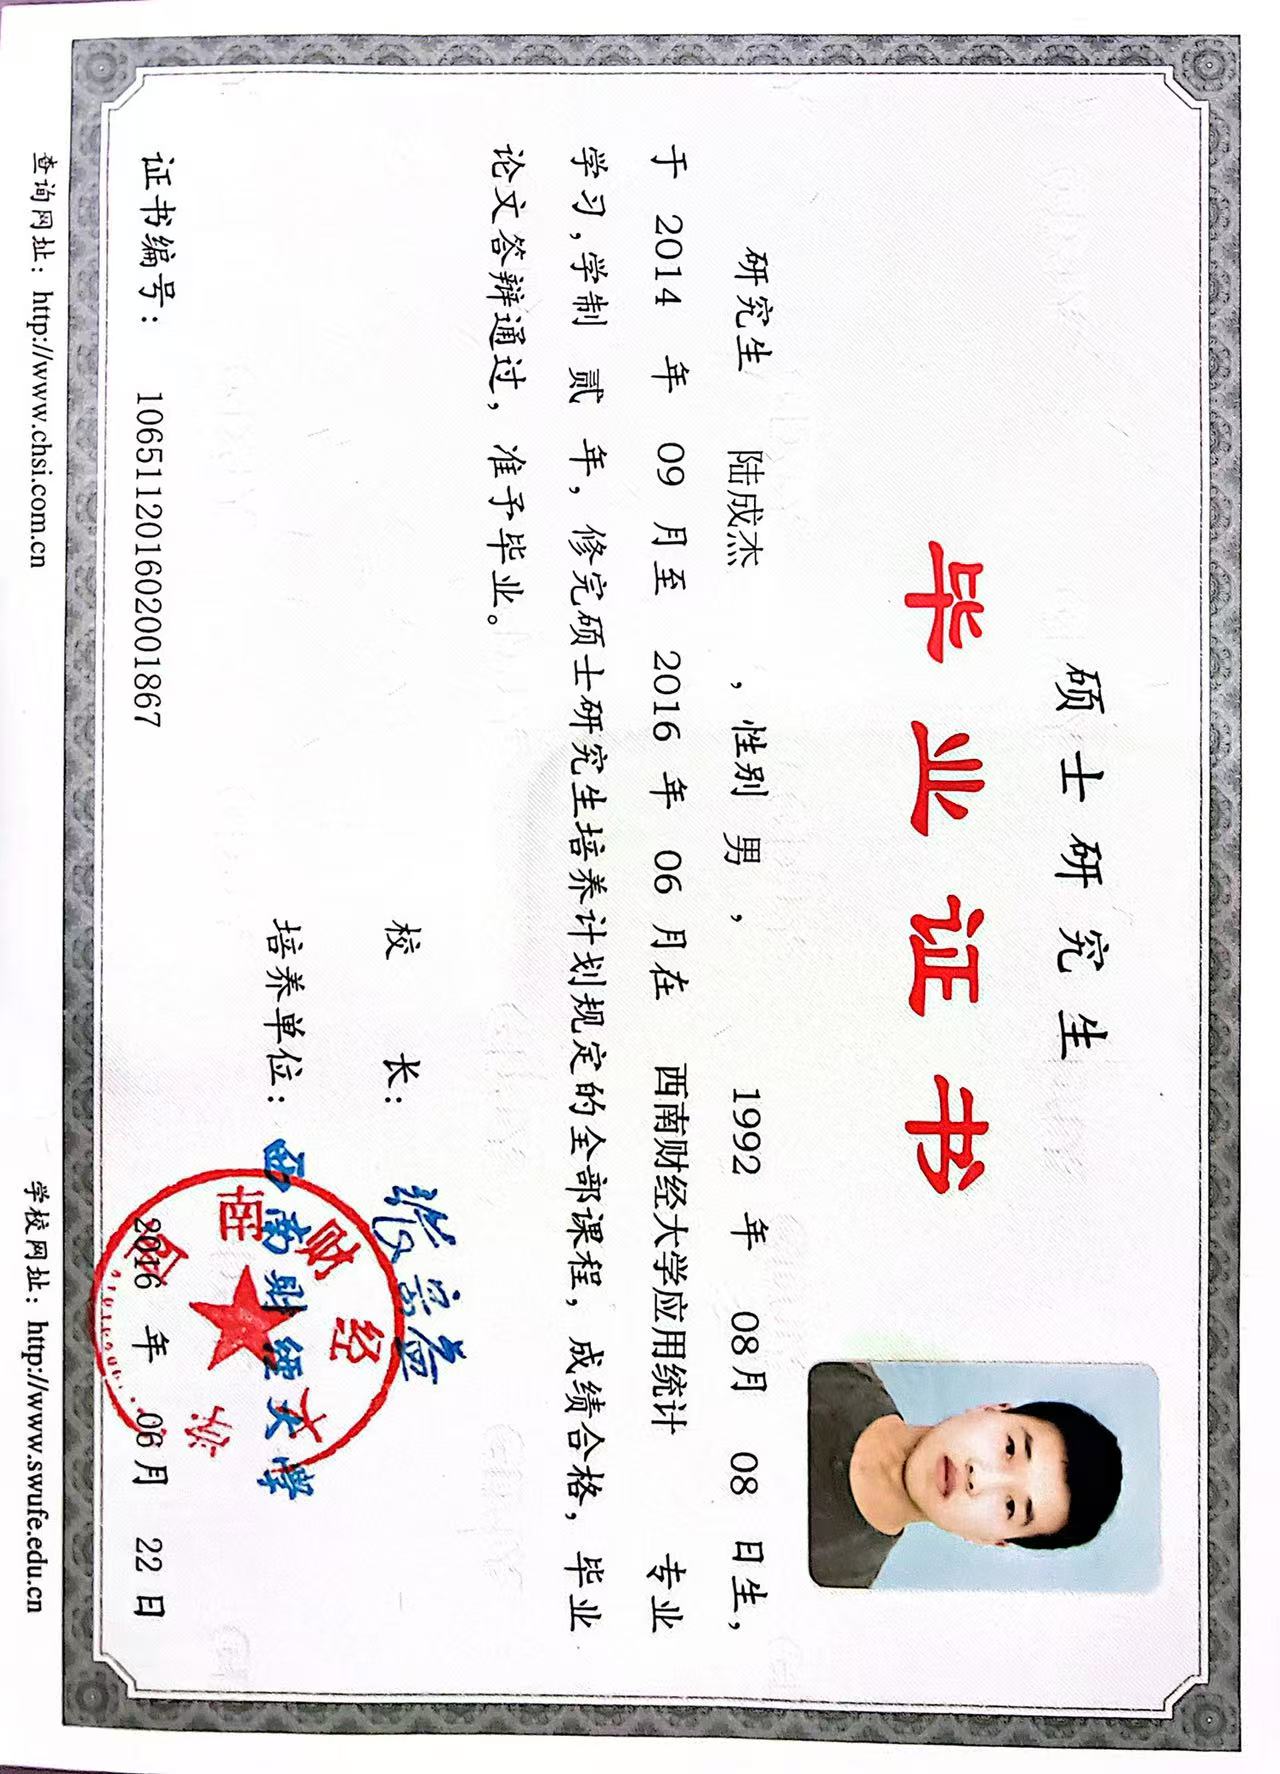 硕士研究生
毕业证书
研究生 陆成杰 ，性别 男 ， 1992 年 08月 08 日生，
于 2014 年 09 月至 2016 年 06 月在 西南财经大学应用统计 专业
学习，学制 贰 年，修完硕士研究生培养计划规定的全部课程，成绩合格，毕业
论文答辩通过，准予毕业。
校 长：
培养单位： 西南财经大学
证书编号： 106511201602001867
2016 年 06月 22 日
查询网址：http://www.chsi.com.cn
学校网址：http://www.swufe.edu.cn